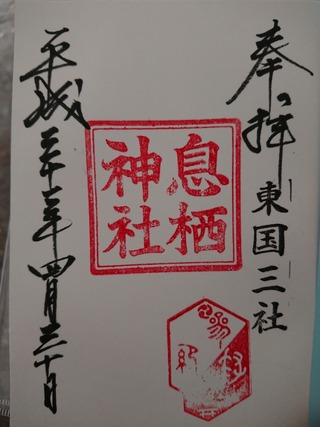 奉拝
東国三社
息栖
神社
平成三十一年四月三十日